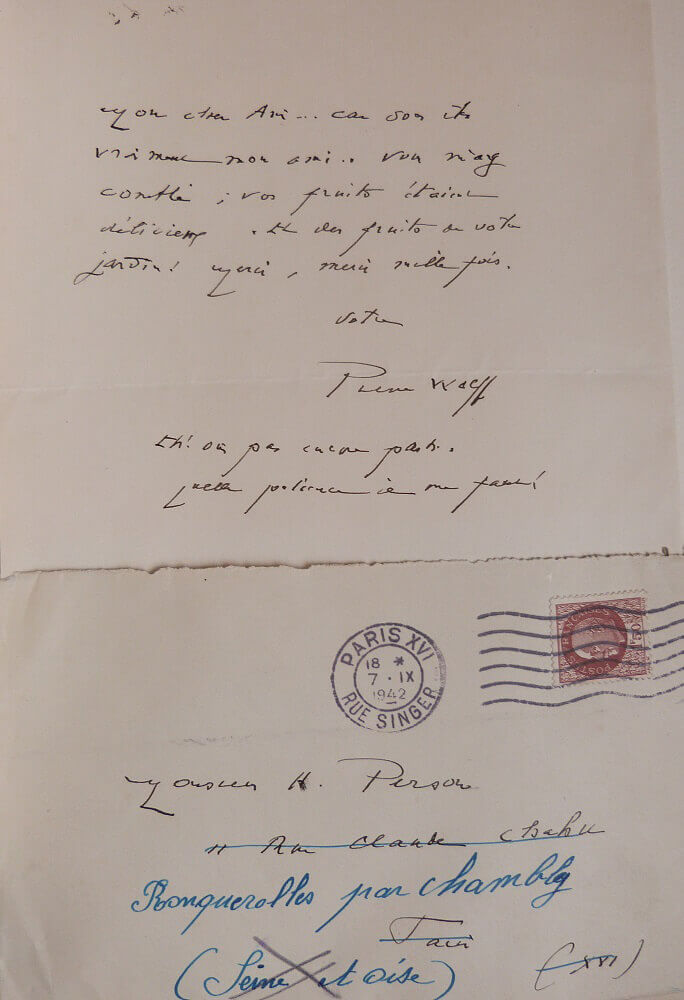 Mon cher Ami... car vous êtes
vraiment mon ami.. vous m'avez
comblé ; vos fruits étaient
délicieux . Et des fruits de votre
jardin! Merci , merci mille fois.
Votre
Pierre Wolff
Et! on pas encore parti.
quelle patience il me faut!
PARIS XVI
18 *
7 • IX
1942
RUE SINGER
POSTES FRANÇAISES
1F50
Monsieur H. Person
11 Rue Claude Chahu
Ronquerolles par Chambly
Paris
(XVI)
(Seine et Oise)